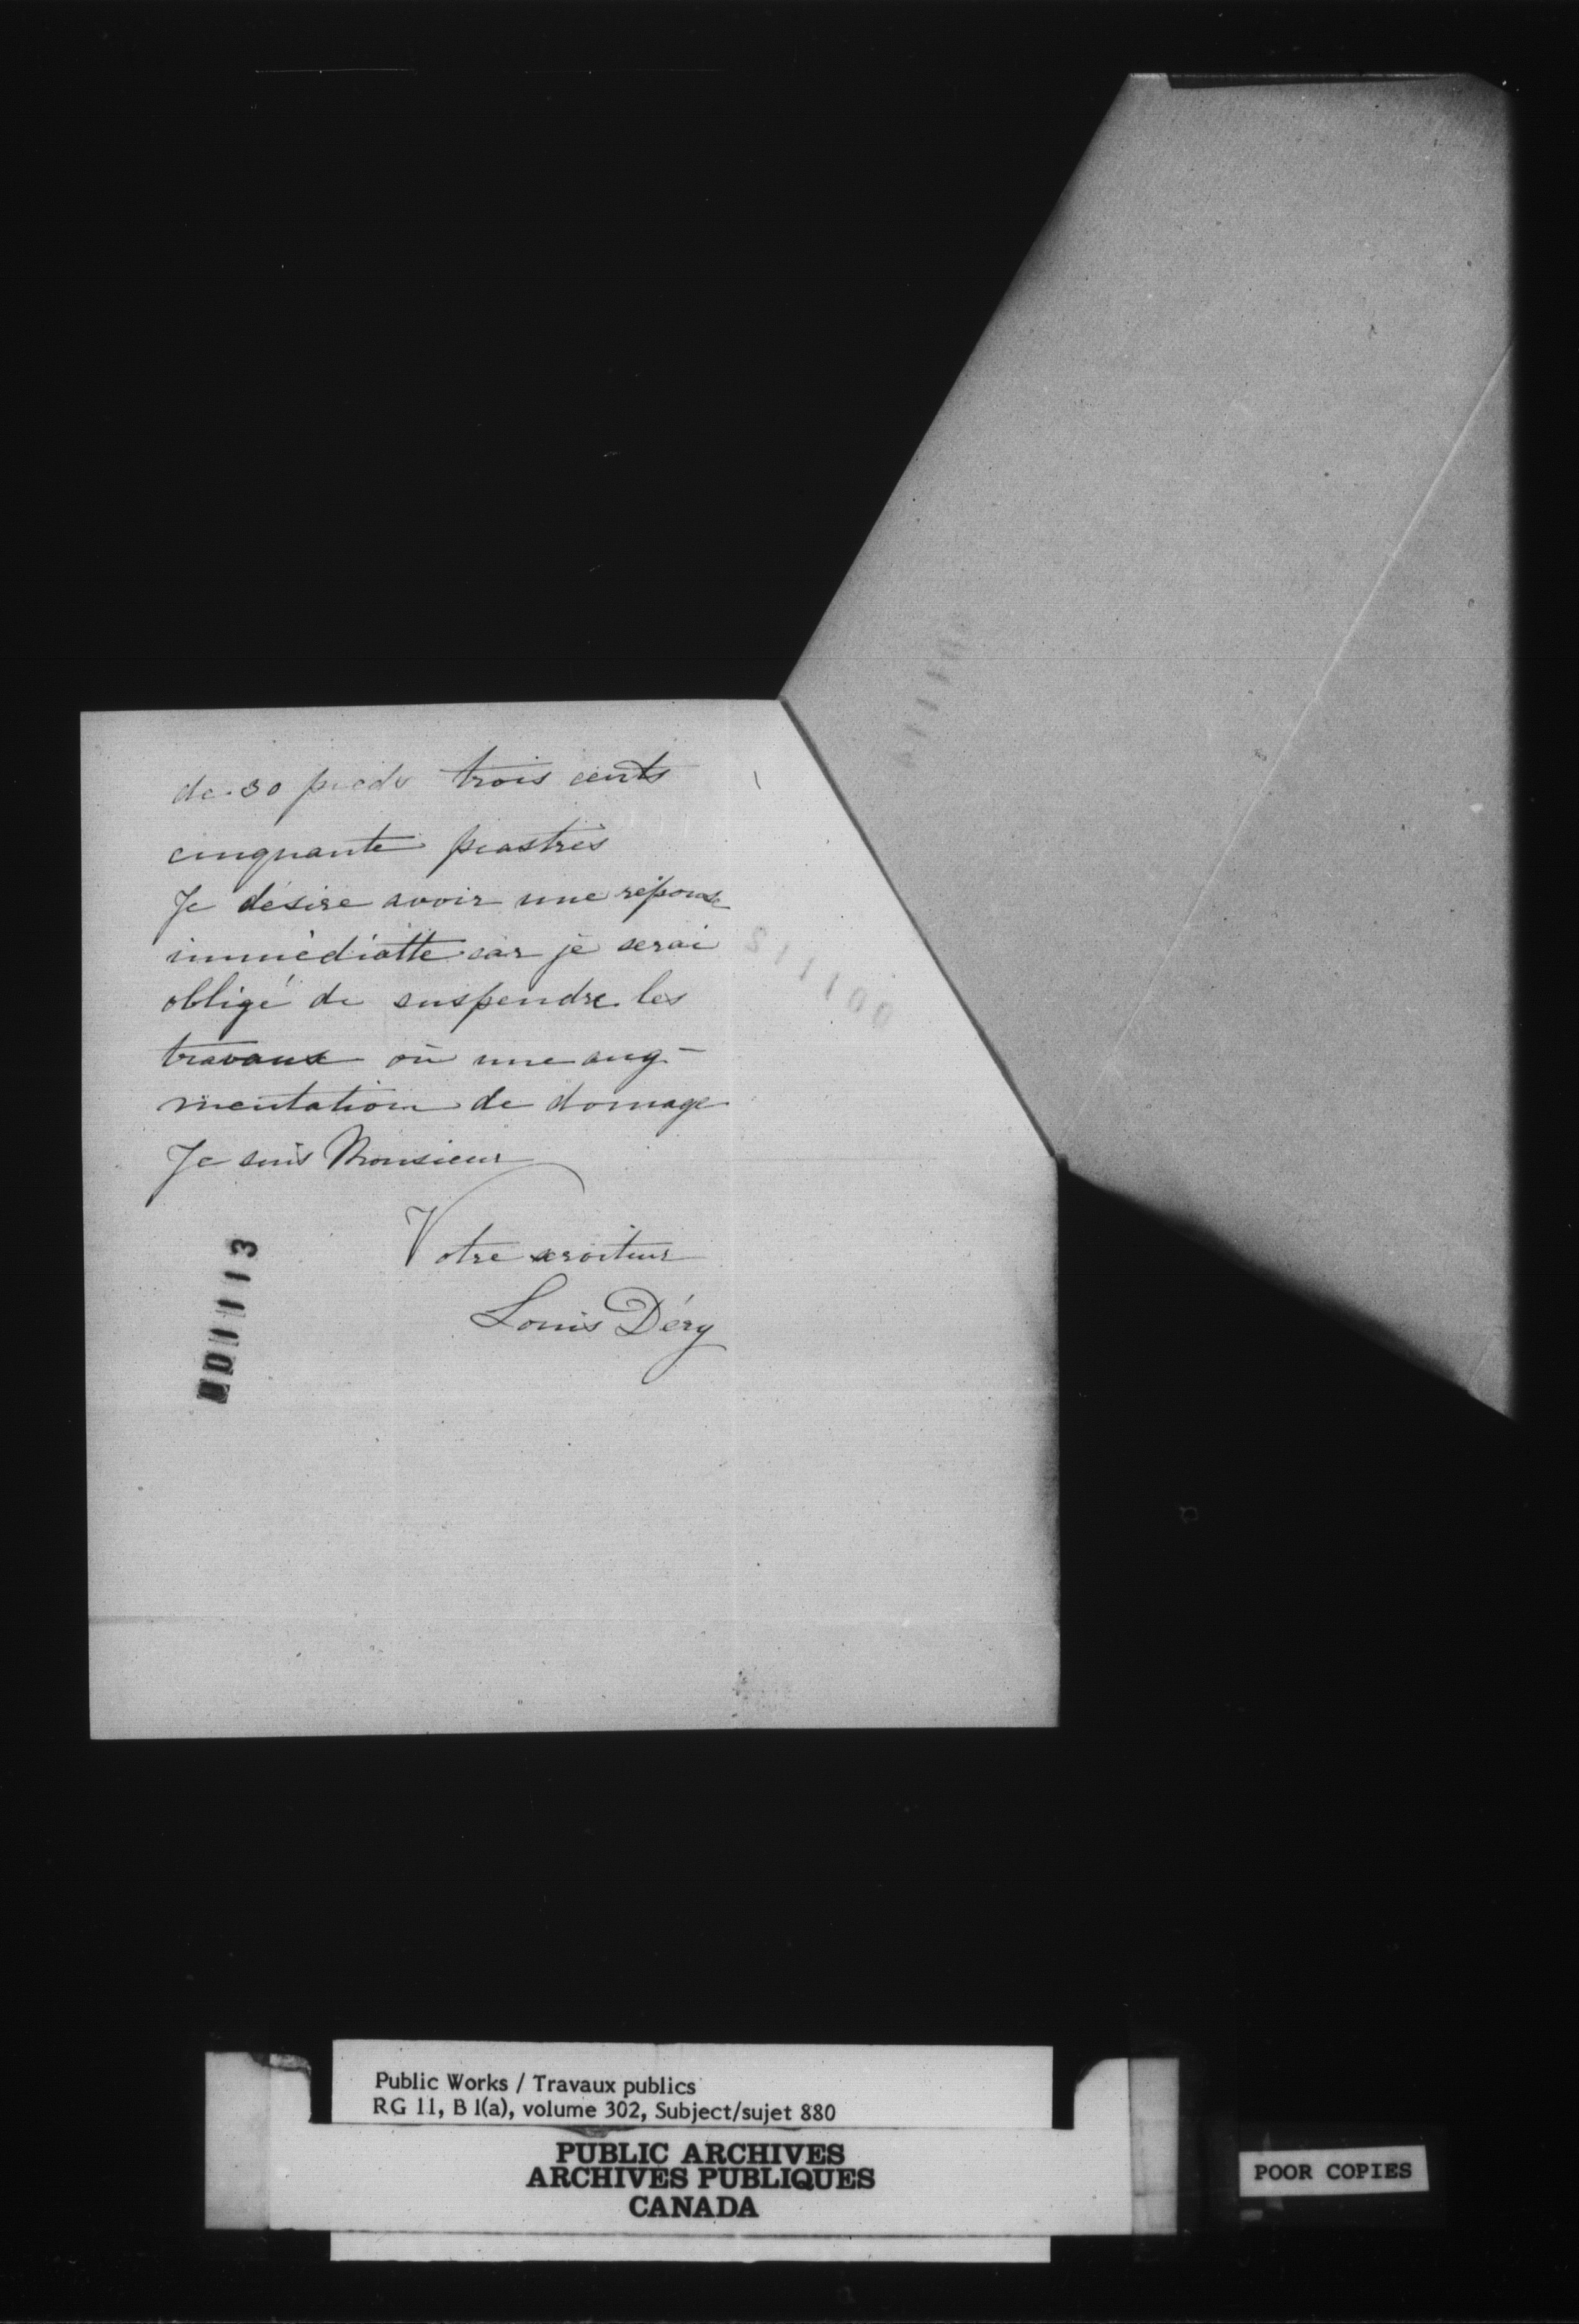 de 30 pieds trois cents
cinquante piastres
Je désire avoir une réponse
immédiatte car je serai
obligé de suspendre les
travaux ou une aug-
mentation de domage
Je suis Monsieur
Votre serviteur
Louis Déry
000113
Public Works / Travaux publics
RG 11, B 1(a), volume 302, Subject/sujet 880
PUBLIC ARCHIVES
ARCHIVES PUBLIQUES
CANADA
POOR COPIES